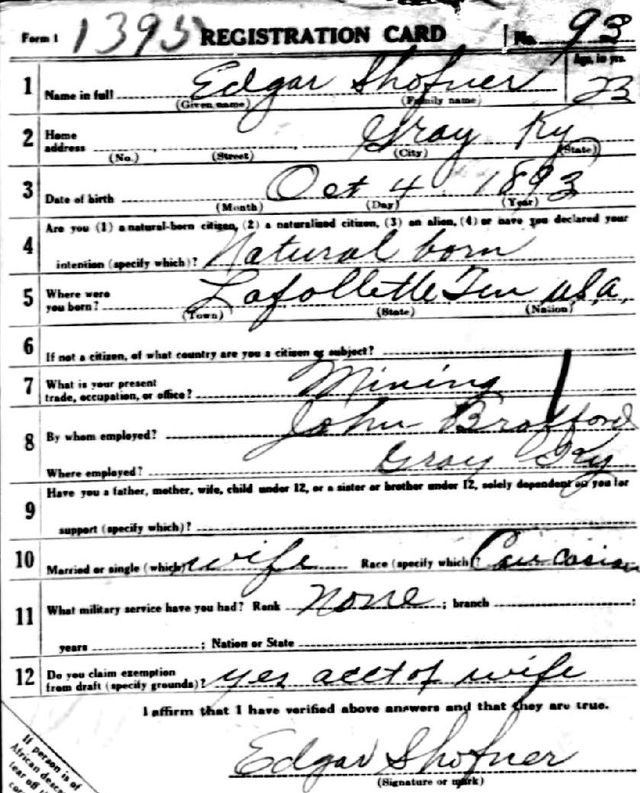 Form 1 1395 REGISTRATION CARD No. 93
1 Name in full Edgar Shofner Age, in yrs. 23
(Given name) (Family name)
2 Home address Gray Ky
(No.) (Street) (City) (State)
3 Date of birth Oct 4 1893
(Month) (Day) (Year)
4 Are you (1) a natural-born citizen, (2) a naturalized citizen, (3) an alien, (4) or have you declared your
intention (specify which)? Natural born
5 Where were you born? Lafollette Ten U.S.A.
(Town) (State) (Nation)
6 If not a citizen, of what country are you a citizen or subject?
7 What is your present trade, occupation, or office? Mining
8 By whom employed? John Bradford
Where employed? Gray Ky
9 Have you a father, mother, wife, child under 12, or a sister or brother under 12, solely dependent on you for
support (specify which)?
10 Married or single (which) wife Race (specify which)? Caucasian
11 What military service have you had? Rank None ; branch ;
years ; Nation or State
12 Do you claim exemption from draft (specify grounds)? yes acct of wife
I affirm that I have verified above answers and that they are true.
Edgar Shofner
(Signature or mark)
If person is of
African desc
tear off